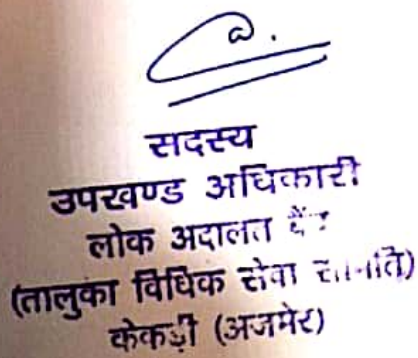 सदस्य
उपखण्ड अधिकारी
लोक अदालत
(तालुका विधिक सेवा समिति)
केकड़ी (अजमेर)